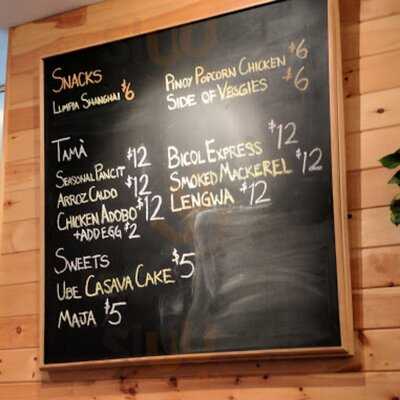 SNACKS
LUMPIA SHANGHAI $6
PINOY POPCORN CHICKEN $6
SIDE OF VEGGIES $6
TAMÀ
SEASONAL PANCIT $12
ARROZ CALDO $12
CHICKEN ADOBO $12
+ADD EGG $2
BICOL EXPRESS $12
SMOKED MACKEREL $12
LENGWA $12
SWEETS
UBE CASAVA CAKE $5
MAJA $5